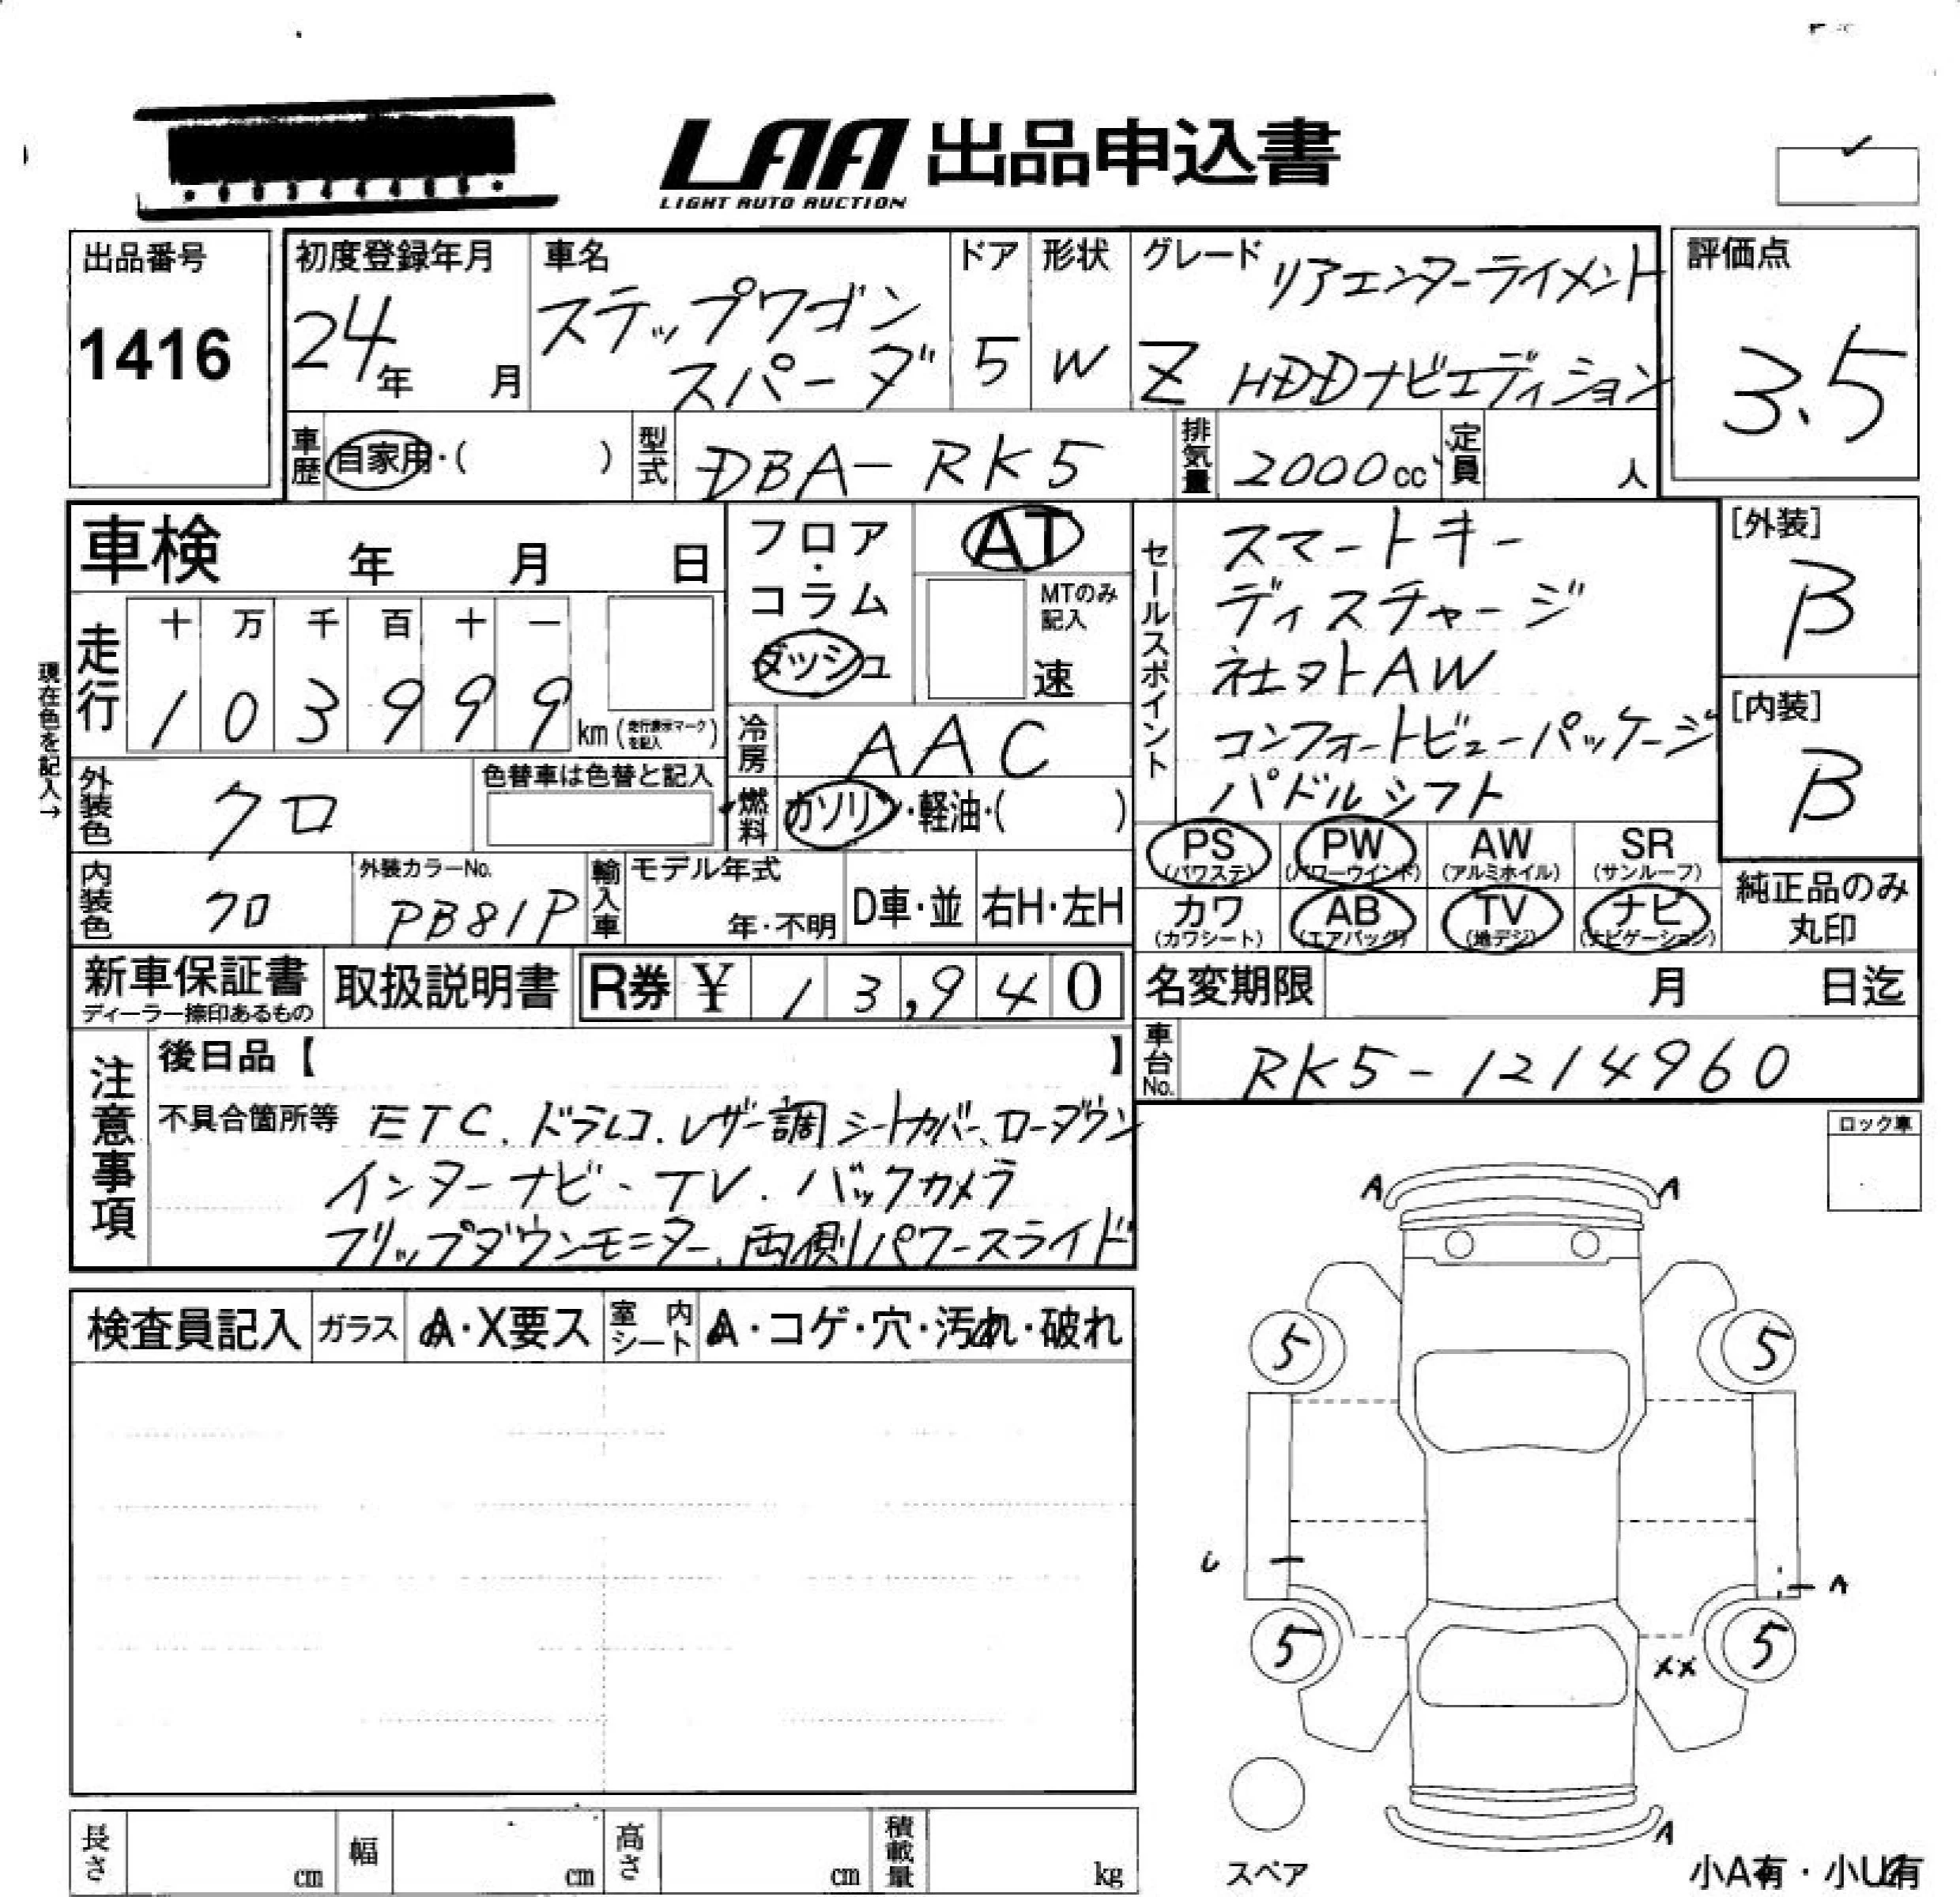 LAA 出品申込書
LIGHT AUTO AUCTION
出品番号
1416
初度登録年月
24年 月
車名
ステップワゴン
スパーダ
ドア
5
形状
W
グレード
リアエンターライメント
Z HDDナビエディション
評価点
3.5
車歴 自家用・( )
型式 DBA-RK5
排気量 2000cc
定員 人
車検 年 月 日
フロア・
コラム
ダッシュ
AT
MTのみ
記入
速
走行 十 万 千 百 十 一
1 0 3 9 9 9 km (走行表示マークを記入)
現在色を記入→
冷房 AAC
燃料 ガソリン・軽油・( )
外装色 クロ
色替車は色替と記入
内装色 クロ
外装カラーNo.
PB81P
輸入車
モデル年式
年・不明
D車・並
右H・左H
セールスポイント
スマートキー
ディスチャージ
社外AW
コンフォートビューパッケージ
パドルシフト
[外装]
B
[内装]
B
PS (パワステ)
PW (パワーウインド)
AW (アルミホイル)
SR (サンルーフ)
カワ (カワシート)
AB (エアバッグ)
TV (地デジ)
ナビ (ナビゲーション)
純正品のみ
丸印
新車保証書
ディーラー捺印あるもの
取扱説明書
R券 ¥ 13,940
名変期限 月 日迄
車台No. RK5-1214960
注意事項
後日品【 】
不具合箇所等 ETC、ドラレコ、レザー調シートカバー、ローダウン
インターナビ・TV、バックカメラ
フリップダウンモニター、両側パワースライド
ロック車
検査員記入
ガラス A・X要ス
室内シート A・コゲ・穴・汚れ・破れ
A A
5 5
U A
5 5
XX
A
スペア
小A有・小U有
長さ cm
幅 cm
高さ cm
積載量 kg